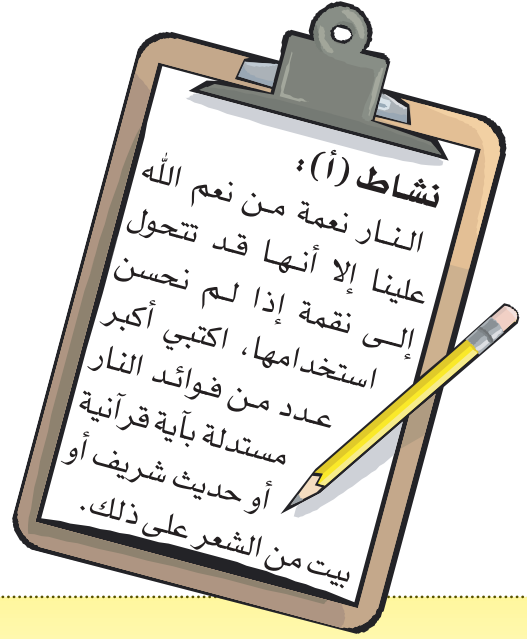 نشاط (أ):
النار نعمة من نعم الله
علينا إلا أنها قد تتحول
إلى نقمة إذا لم نحسن
استخدامها، اكتبي أكبر
عدد من فوائد النار
مستدلة بآية قرآنية
أو حديث شريف أو
بيت من الشعر على ذلك.